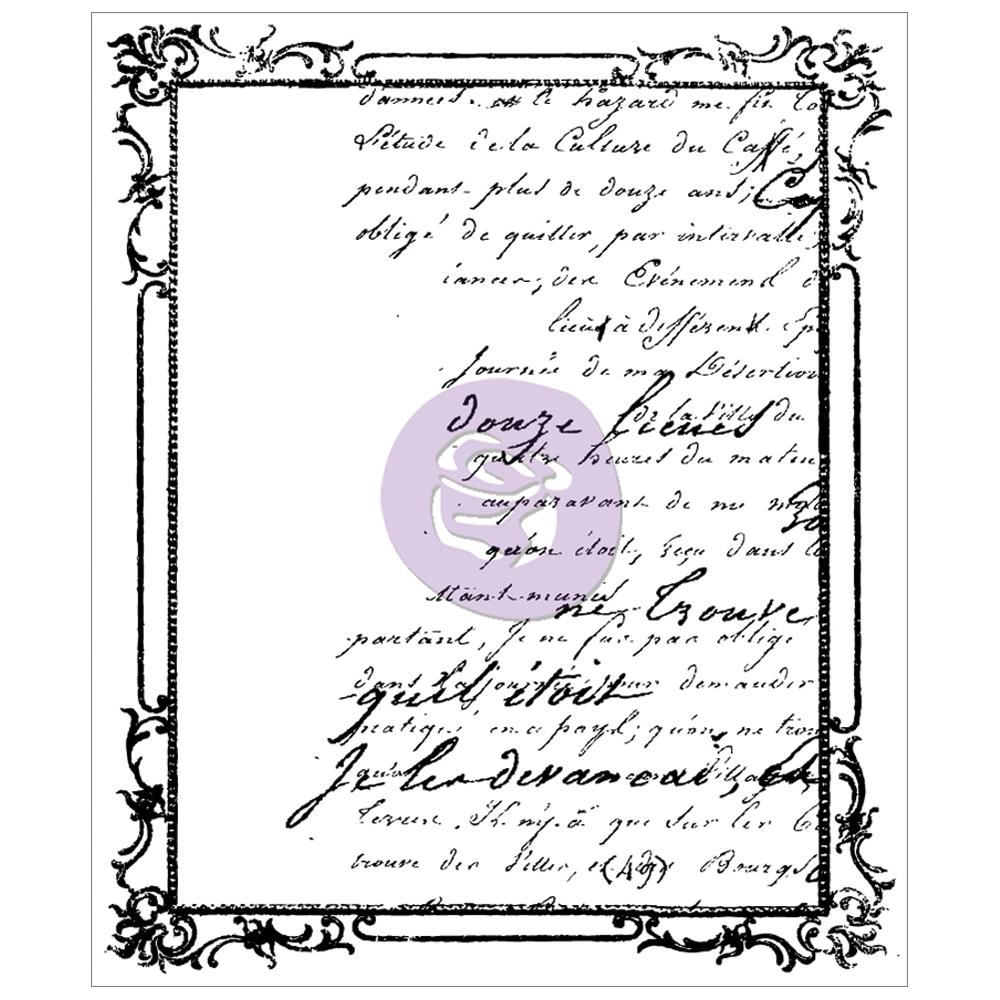 d'annees. le hazard me fit
L'étude de la Culture du Caffé,
pendant plus de douze ans;
obligé de quitter, par intervalle
iances, des Evénemens
lieux à différens
Journée de ma Désertion
de la Ville du
douze lieues
quatre heures du matin
auparavant de me
qu'on étoit, reçu dans
étant munis
ne trouve
partant, Je ne fus pas obligé
dans la journée, pour demander
quil étoit
pratiqué en a payé; qu'on ne trou
Je les devançai,
que sur les
trouve des Villes, et (49) Bourgs